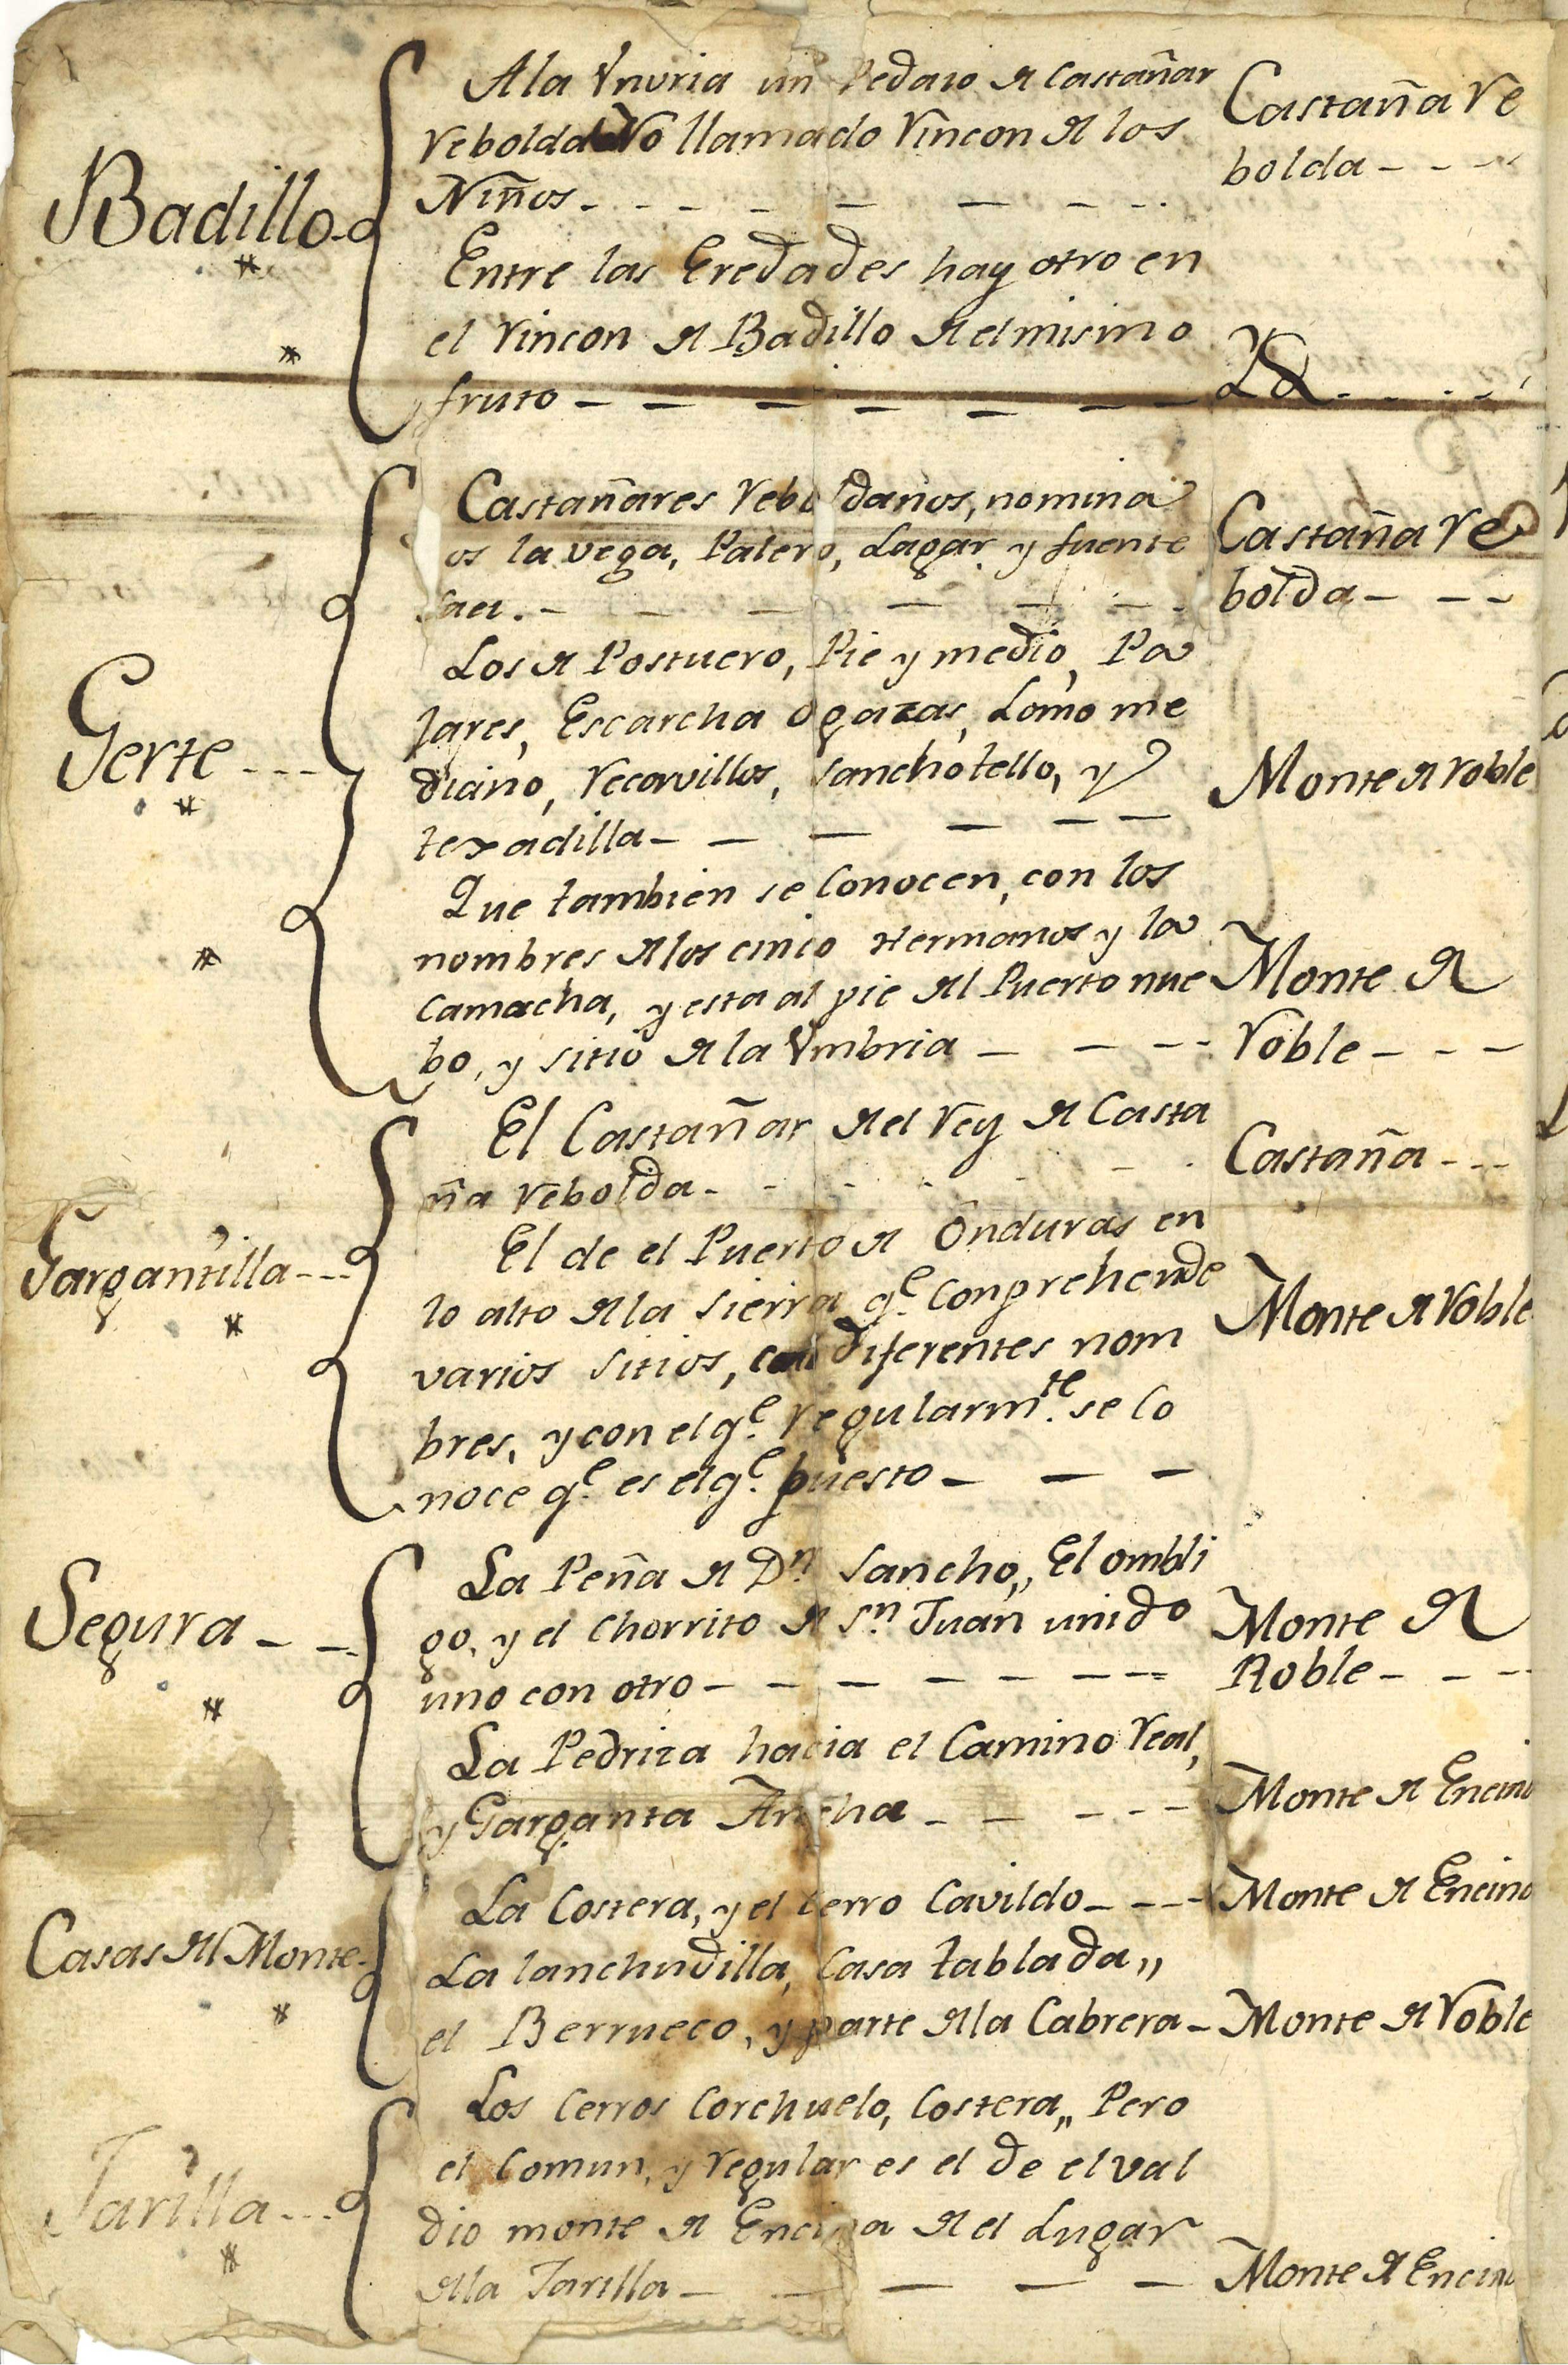 Badillo
A la Vnvria un Pedazo de Castañar
reboldano llamado Rincon de los
Niños
Castaña re
bolda
Entre las Eredades hay otro en
el rincon de Badillo de el mismo
fruto
Yd
Gerte
Castañares reboldanos, nomina
os la vega, Palero, Lagar y fuente
Castaña re
bolda
Los de Postuero, Pie y medio, Pa
jares, Escarcha ogazas, Lomo me
diano, recarvillos, Sanchotello, y
texadilla
Monte de roble
Que tambien se Conocen, con los
nombres de los cinco Hermanos y la
Camacha, y esta al pie del Puerto nue
bo, y sitio de la Vmbria
Monte de
roble
Gargantilla
El Castañar de el rey de Casta
ña rebolda
Castaña
El de el Puerto de Onduras en
lo alto de la sierra qe. Conprehende
varios sitios, con diferentes nom
bres, y con el qe. regularmte. se Co
noce qe. es el qe. puesto
Monte de roble
Segura
La Peña de Dn. Sancho,, El ombli
go, y el Chorrito de Sn. Juan unido
uno con otro
Monte de
Roble
La Pedriza hacia el Camino real,
y Garganta Ancha
Monte de Encina
Casas del Monte
La Costera, y el Cerro Cavildo
Monte de Encina
La lanchudilla, Casa tablada,,
el Berrueco, y parte de la Cabrera
Monte de roble
Jarilla
Los Cerros Corchuelo, Costera,, Pero
el Comun, y regular es el de el val
dio monte de Encina de el Lugar
de la Jarilla
Monte de Encina